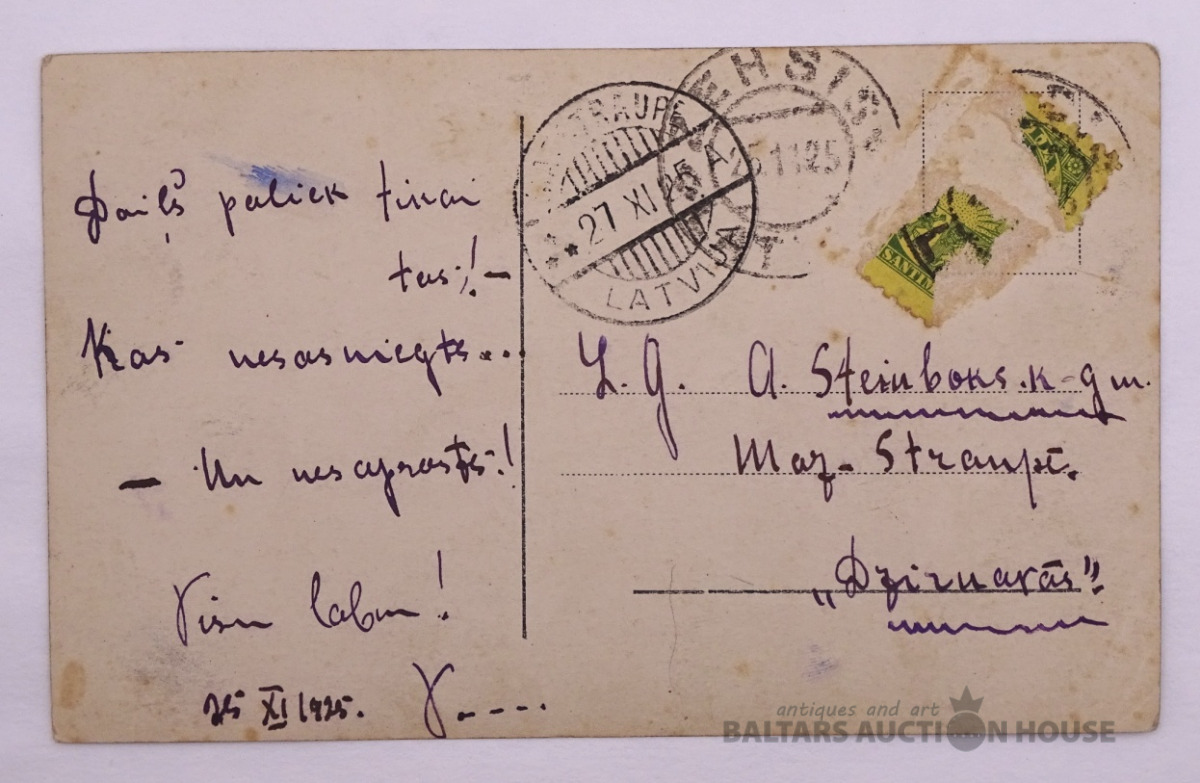 Daiļš paliek tikai
tas;!-
Kas nesasniegts...
- Un nesaprasts!
Visu labu!
25 XI 1925. V.----
STRAUPE
** 27 XI 25
LATVIJA
CEHSIS
25.11.25
SANTI
Z. G. A. Šteinboks.k-gm.
Maz-Straupē.
„Dzirnavās”
antiques and art
BALTARS AUCTION HOUSE